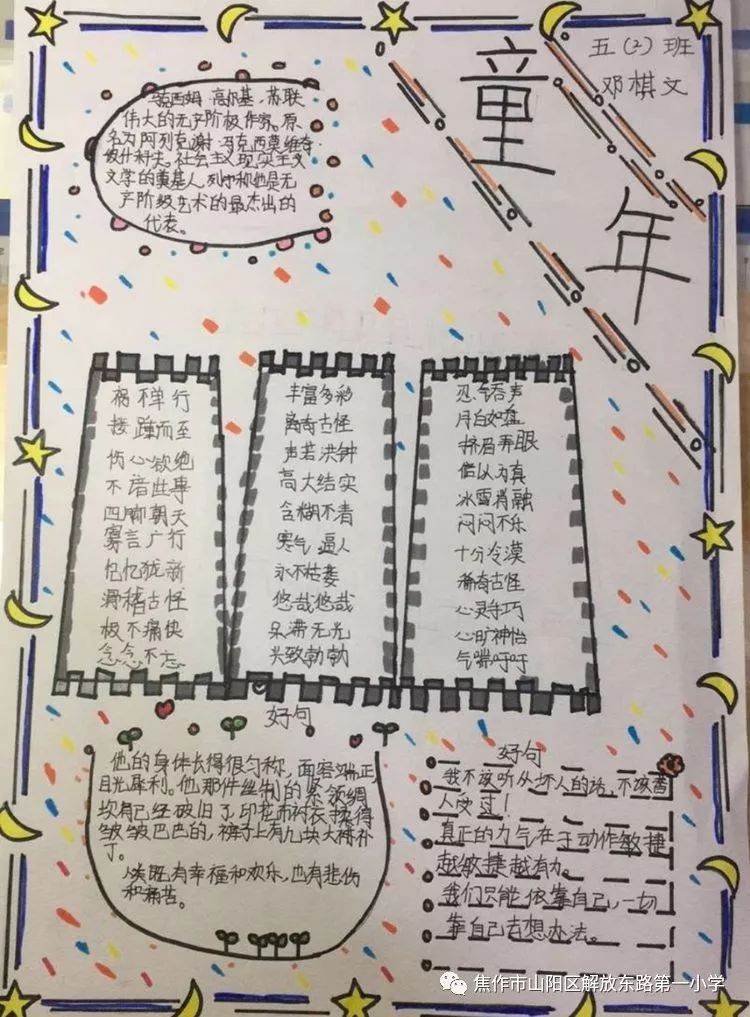 童年
五(2)班
邓棋文
马克西姆·高尔基,苏联
伟大的无产阶极作家。原
名为阿列克谢·马克西莫维奇·
彼什科夫。社会主义现实主义
文学的奠基人,列宁称他是无
产阶级艺术的最杰出的
代表。
祸不单行
接踵而至
伤心欲绝
不谙世事
四脚朝天
寡言广行
记忆犹新
滑稽古怪
极不痛快
念念不忘
丰富多彩
离奇古怪
声若洪钟
高大结实
含糊不清
寒气逼人
永不枯萎
悠哉悠哉
呆滞无光
兴致勃勃
忍气吞声
月白如盘
挤眉弄眼
信以为真
冰雪消融
闷闷不乐
十分冷漠
稀奇古怪
心灵手巧
心旷神怡
气喘吁吁
好句
他的身体长得很匀称,面容端正
目光犀利。他那件丝制的紧领绸
衫有已经破旧了,印花布衬衣揉得
皱皱巴巴的,裤子上有几块大补补
丁。
人类既有幸福和欢乐,也有悲伤
和痛苦。
好句
我不该听从坏人的话,不该替
人受过!
真正的力气在于动作敏捷
越敏捷越有力。
我们只能依靠自己,一切
靠自己去想办法。
焦作市山阳区解放东路第一小学